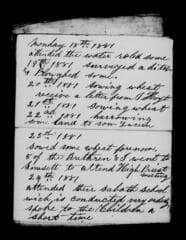 Monday 18th 1881
attended the water robd some
19th 1881 surveyed a ditch
& Ploughed some.
20th 1881 Sowing wheat
receive a letter from
21st 1881 Sowing wheat
22nd 1881 harrowing
some
23th 1881
sowed some wheat forenoon,
8 of the Brethren & S went to
to attend High Priest
24th 1881 meeting
attended their sabath school
wich is conducted very orderly
spoke to the Children a
short time